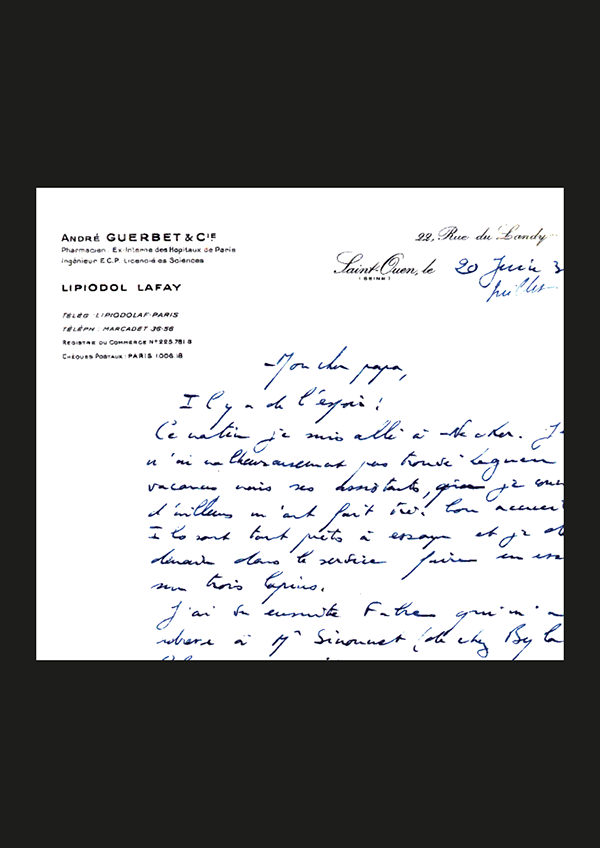 ANDRÉ GUERBET & CIE
Pharmacien. Ex-Interne des Hopitaux de Paris
Ingénieur E.C.P. Licencié ès Sciences
LIPIODOL LAFAY
TÉLÉG : LIPIODOLAF-PARIS
TÉLÉPH : MARCADET 36-56
REGISTRE DU COMMERCE N° 225.781 B
CHÈQUES POSTAUX : PARIS 1006.18
22, Rue du Landy
Saint-Ouen, le 20 Juin 3
(SEINE)
juillet
Mon cher papa,
Il y a de l'espoir !
Ce matin je suis allé à Necker. Je
n'ai malheureusement pas trouvé
vacances mais ses assistants, que je
d'ailleurs m'ont fait très bon accueil
Ils sont tout prêts à essayer et je
demain dans le service faire un
sur trois lapins.
J'ai vu ensuite qui m'a
à Mr (de chez By la